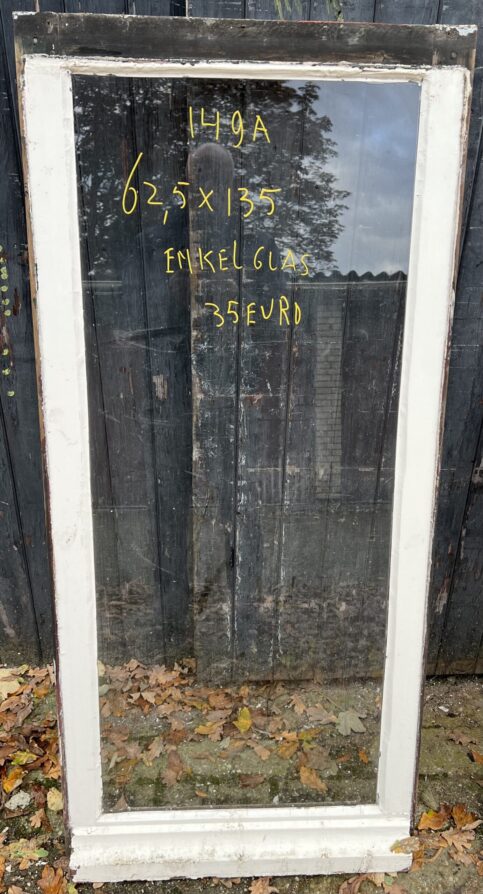 149A
62,5 x 135
ENKEL GLAS
35 EURO